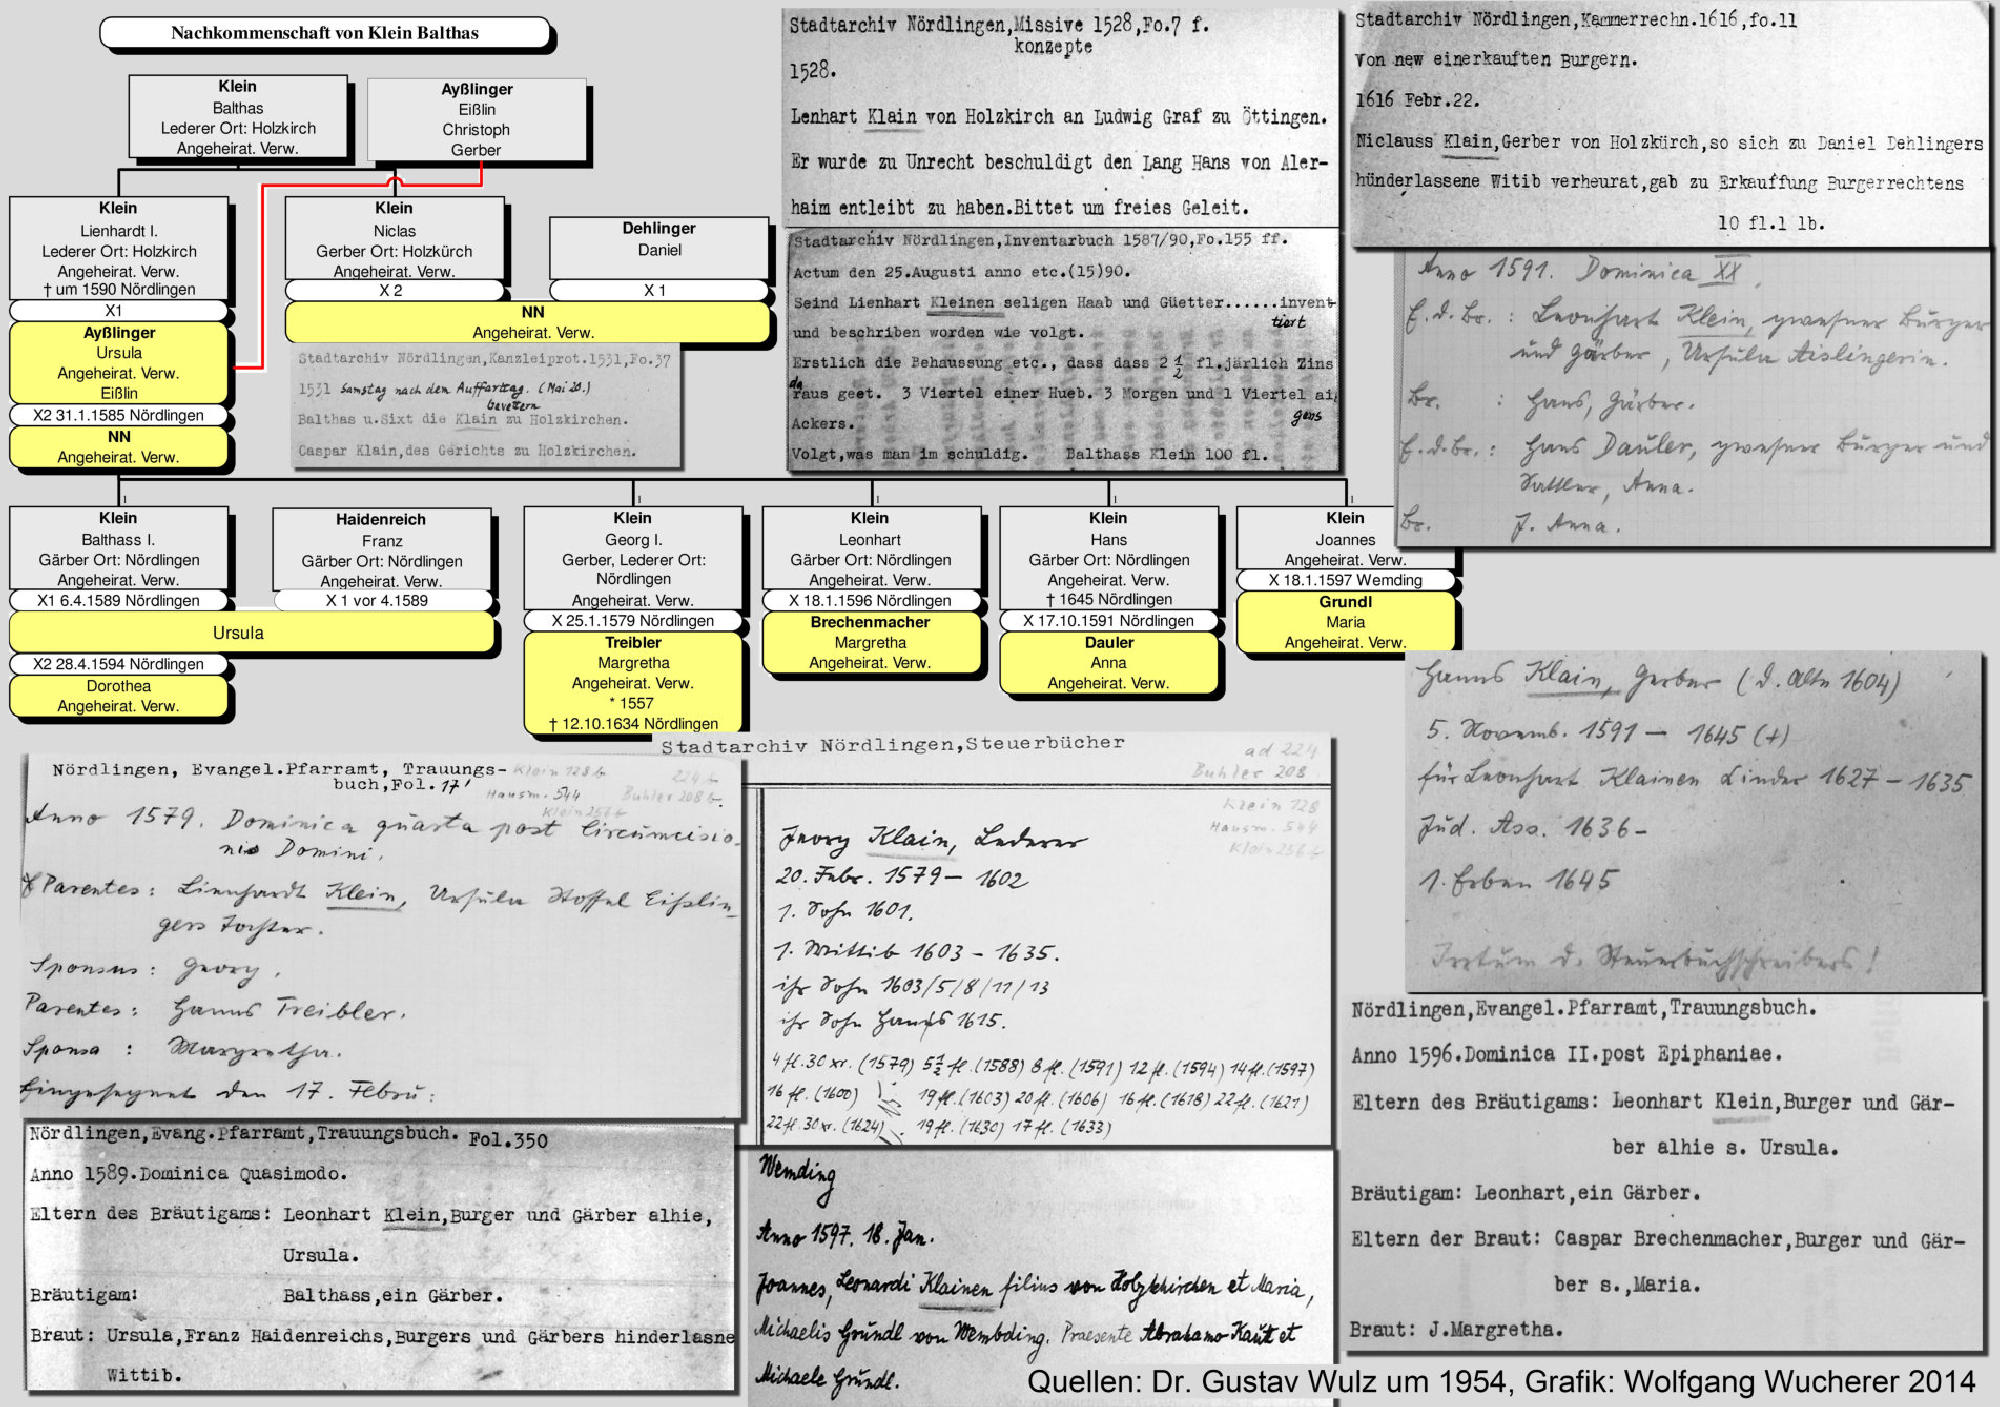 Nachkommenschaft von Klein Balthas
Klein
Balthas
Lederer Ort: Holzkirch
Angeheirat. Verw.
Ayßlinger
Eißlin
Christoph
Gerber
Klein
Lienhardt I.
Lederer Ort: Holzkirch
Angeheirat. Verw.
† um 1590 Nördlingen
X1
Ayßlinger
Ursula
Angeheirat. Verw.
Eißlin
X2 31.1.1585 Nördlingen
NN
Angeheirat. Verw.
Klein
Niclas
Gerber Ort: Holzkürch
Angeheirat. Verw.
X 2
Dehlinger
Daniel
X 1
NN
Angeheirat. Verw.
Stadtarchiv Nördlingen,Kanzleiprot.1531,Fo.37
1531 Samstag nach dem Auffartag. (Mai 20.)
Balthas u.Sixt die Klain zu Holzkirchen.
Caspar Klain,des Gerichts zu Holzkirchen.
Klein
Balthass I.
Gärber Ort: Nördlingen
Angeheirat. Verw.
X1 6.4.1589 Nördlingen
Haidenreich
Franz
Gärber Ort: Nördlingen
Angeheirat. Verw.
X 1 vor 4.1589
Ursula
X2 28.4.1594 Nördlingen
Dorothea
Angeheirat. Verw.
Klein
Georg I.
Gerber, Lederer Ort:
Nördlingen
Angeheirat. Verw.
X 25.1.1579 Nördlingen
Treibler
Margretha
Angeheirat. Verw.
* 1557
† 12.10.1634 Nördlingen
Klein
Leonhart
Gärber Ort: Nördlingen
Angeheirat. Verw.
X 18.1.1596 Nördlingen
Brechenmacher
Margretha
Angeheirat. Verw.
Klein
Hans
Gärber Ort: Nördlingen
Angeheirat. Verw.
† 1645 Nördlingen
X 17.10.1591 Nördlingen
Dauler
Anna
Angeheirat. Verw.
Klein
Joannes
Angeheirat. Verw.
X 18.1.1597 Wemding
Grundl
Maria
Angeheirat. Verw.
Stadtarchiv Nördlingen,Missive 1528,Fo.7 f.
konzepte
1528.
Lenhart Klain von Holzkirch an Ludwig Graf zu Öttingen.
Er wurde zu Unrecht beschuldigt den Lang Hans von Aler-
haim entleibt zu haben.Bittet um freies Geleit.
Stadtarchiv Nördlingen,Inventarbuch 1587/90,Fo.155 ff.
Actum den 25.Augusti anno etc.(15)90.
Seind Lienhart Kleinen seligen Haab und Güetter......invent-
tiert
und beschriben worden wie volgt.
Erstlich die Behaussung etc., dass dass 2 1/2 fl.järlich Zins
daraus geet. 3 Viertel einer Hueb. 3 Morgen und 1 Viertel ai
gens
Ackers.
Volgt,was man im schuldig. Balthass Klein 100 fl.
Stadtarchiv Nördlingen,Kammerrechn.1616,fo.11
Von new einerkauften Burgern.
1616 Febr.22.
Niclauss Klain,Gerber von Holzkürch,so sich zu Daniel Dehlingers
hünderlassene Witib verheurat,gab zu Erkauffung Burgerrechtens
10 fl.1 lb.
Anno 1591. Dominica XX.
E. d. Br. : Leonhart Klein, gwesner Burger
und Gärber, Ursula Aislingerin.
Br. : Hans, Gärber.
E. d. Br. : Hans Dauler, gwesner Burger und
Sattler, Anna.
Br. J. Anna.
Hanns Klain, Gerber (d. Alte 1604)
5. Novemb. 1591 – 1645 (†)
für Leonhart Klainen Kinder 1627 – 1635
Jud. Ass. 1636 –
1. Erben 1645
Irrtum d. Steuerbuchschreibers!
Nördlingen, Evangel.Pfarramt, Trauungs-
buch,Fol.17'
Klein 128 b 224 b
Hausm. 544 Buhler 208 b.
Klein 256 b
Anno 1579. Dominica quarta post Circumcisio-
nis Domini.
Parentes: Linnhardt Klein, Ursula Stoffel Eißlin-
gers Tochter.
Sponsus: Georg.
Parentes: Hanns Treibler.
Sponsa : Margretha.
Eingesegnet den 17. Febru:
Stadtarchiv Nördlingen,Steuerbücher
ad 224
Buhler 208.
Klein 128
Hausm. 544
Klein 256 b
Jeorg Klain, Lederer
20. Febr. 1579 – 1602
1. Sohn 1601.
1. Wittib 1603 – 1635.
ihr Sohn 1603/5/8/11/13
ihr Sohn Hanns 1615.
4 fl. 30 xr. (1579) 5 1/2 fl (1588) 8 fl. (1591) 12 fl. (1594) 14 fl. (1597)
16 fl. (1600) 19 fl. (1603) 20 fl. (1606) 16 fl. (1618) 22 fl. (1621)
22 fl. 30 xr. (1624) 19 fl. (1630) 17 fl. (1633)
Nördlingen,Evang.Pfarramt,Trauungsbuch. Fol.350
Anno 1589.Dominica Quasimodo.
Eltern des Bräutigams: Leonhart Klein,Burger und Gärber alhie,
Ursula.
Bräutigam: Balthass,ein Gärber.
Braut: Ursula,Franz Haidenreichs,Burgers und Gärbers hinderlasne
Wittib.
Wemding
Anno 1597. 18. Jan.
Joannes, Leonardi Klainen filius von Holzkirchen et Maria,
Michaelis Grundl von Wembding. Praesente Abrahamo Kaut et
Michaele Grundl.
Nördlingen,Evangel.Pfarramt,Trauungsbuch.
Anno 1596.Dominica II.post Epiphaniae.
Eltern des Bräutigams: Leonhart Klein,Burger und Gär-
ber alhie s. Ursula.
Bräutigam: Leonhart,ein Gärber.
Eltern der Braut: Caspar Brechenmacher,Burger und Gär-
ber s.,Maria.
Braut: J.Margretha.
Quellen: Dr. Gustav Wulz um 1954, Grafik: Wolfgang Wucherer 2014